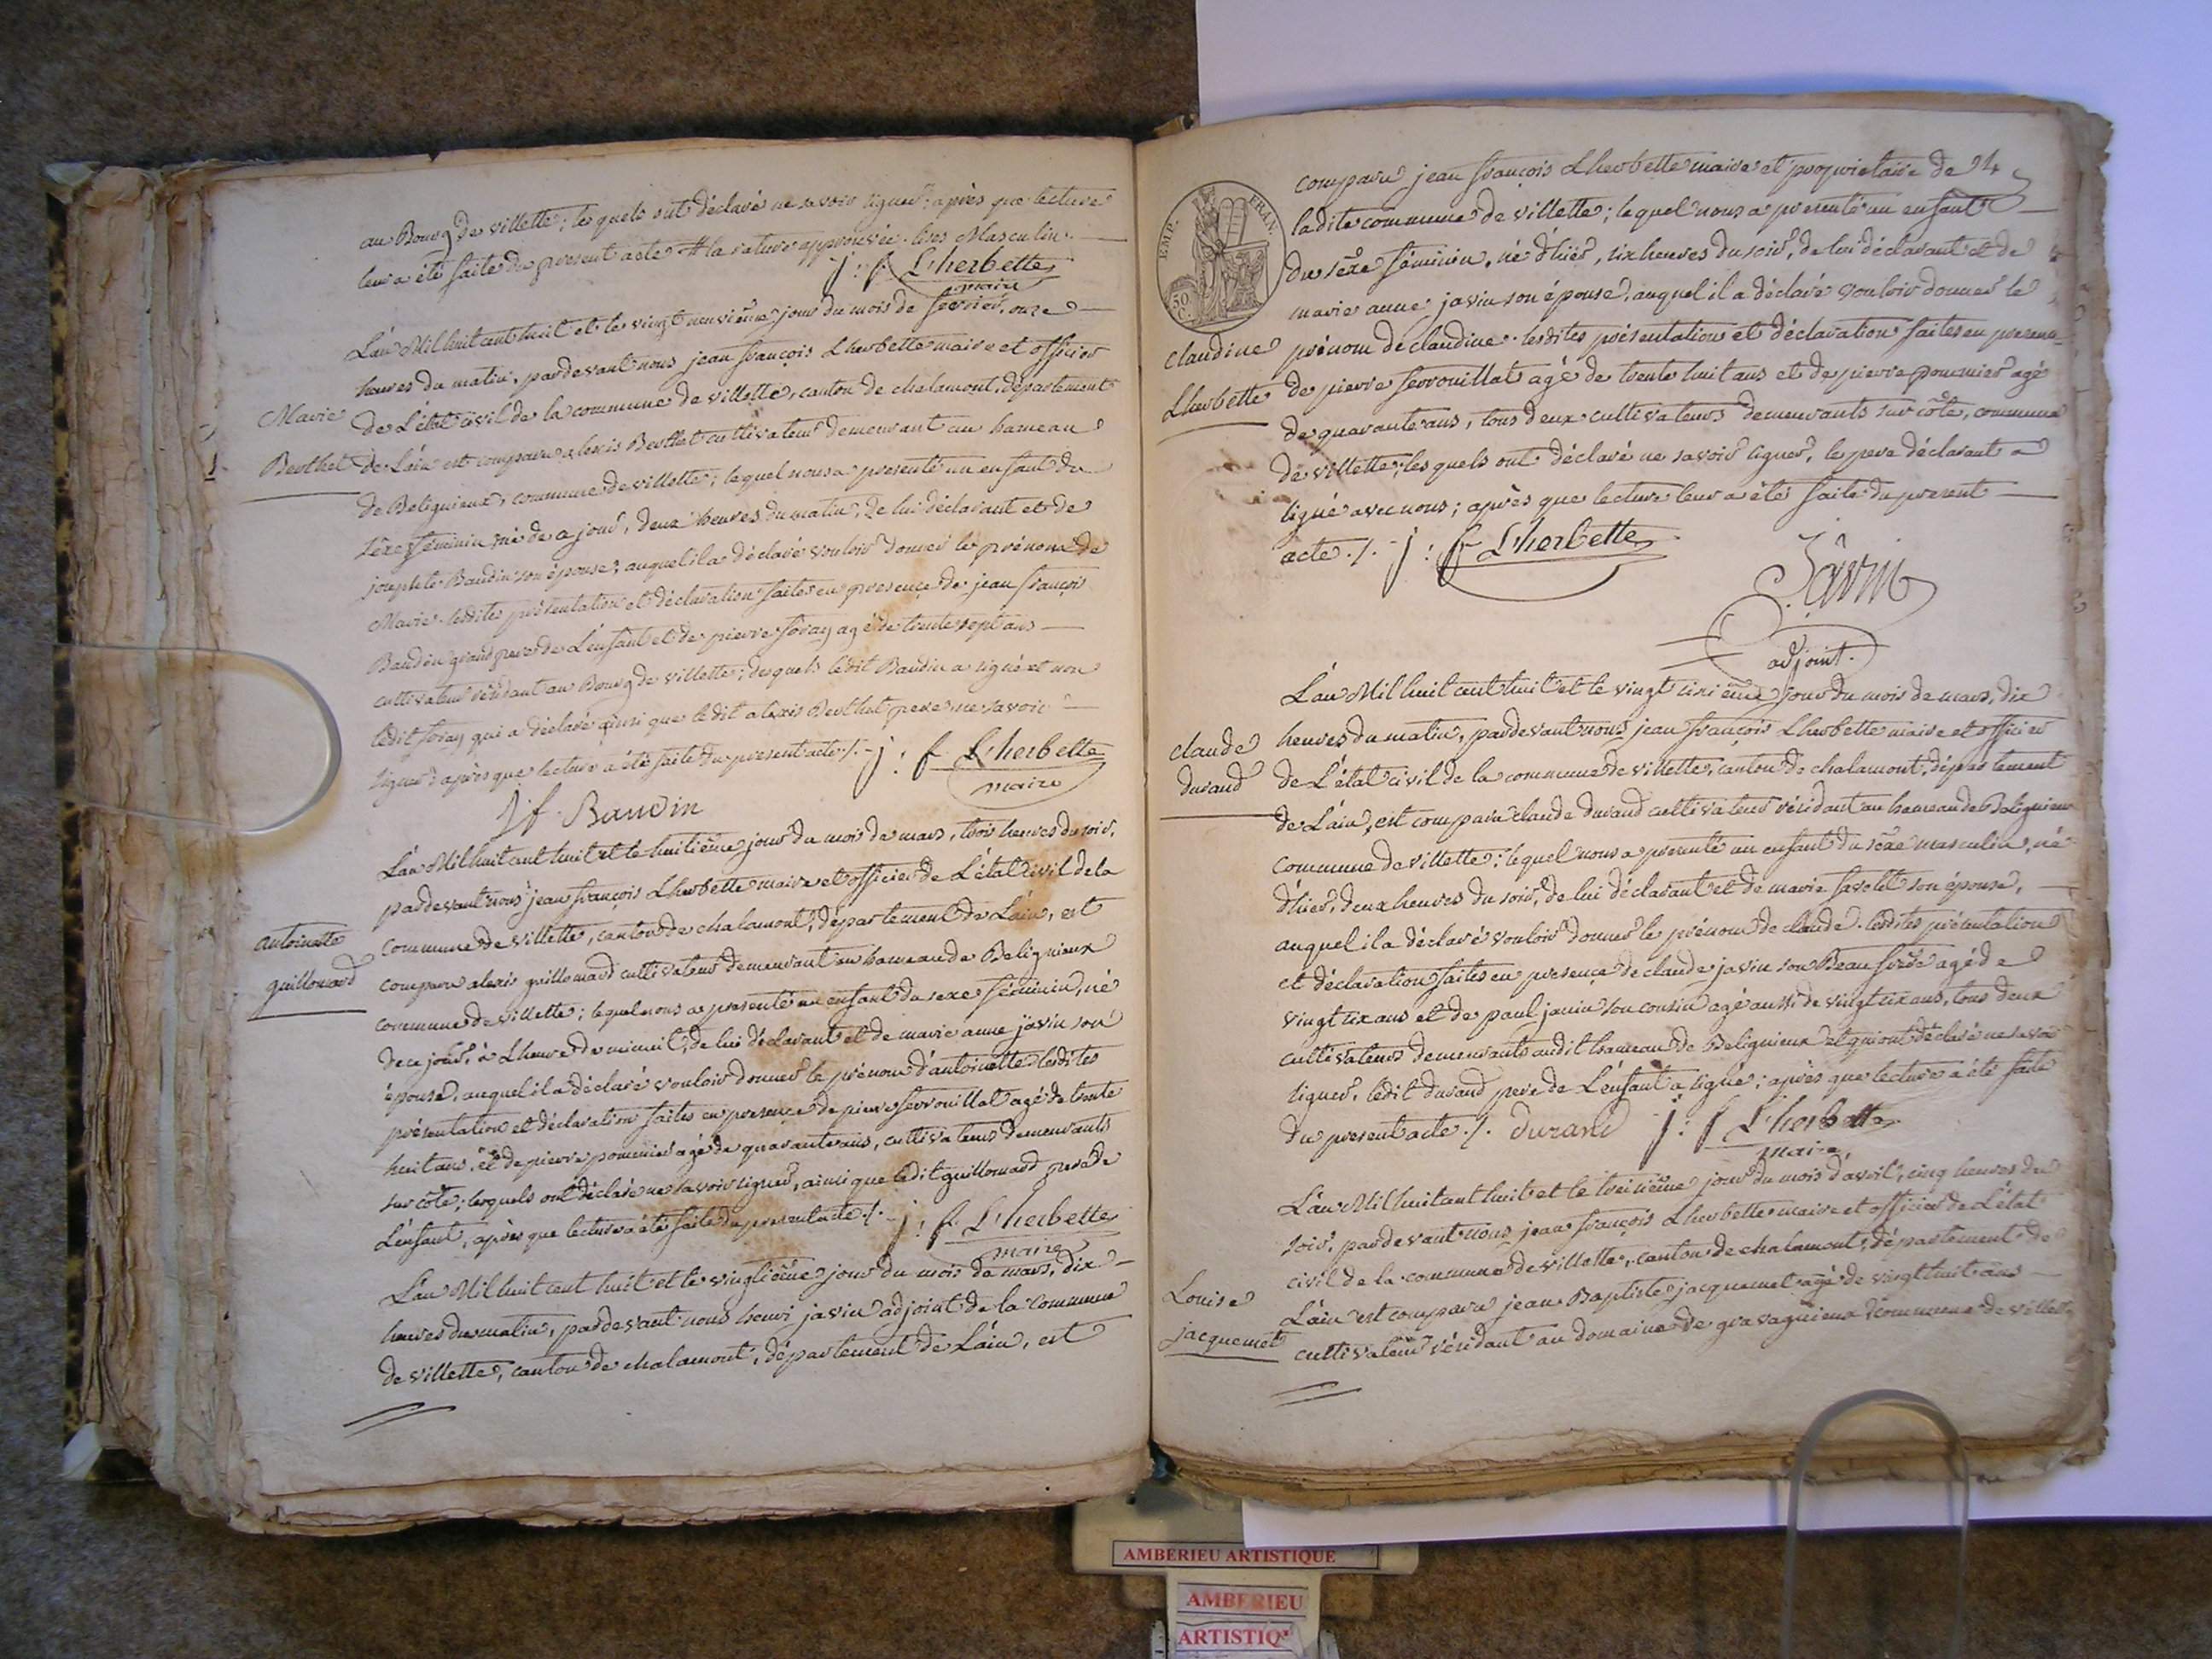 au Bourg de villette; lesquels ont déclaré ne savoir signer; après que lecture
leur a été faite du present acte # la rature approuvée. lires Masculin.
j: f L'herbette
maire
L'an Mil huit cent huit et le vingt neuvième jour du mois de fevrier, onze
heures du matin, pardevant nous jean françois Lherbette maire et officier
de L'état civil de la commune de villette, canton de chalamont, département
Marie
Berthet
de L'ain est comparu alexis Berthet cultivateur demeurant au hameau
de Belignieux, commune de villette; lequel nous a presenté un enfant du
sèxe féminin né de ce jour, deux heures du matin, de lui déclarant et de
josephte Baudin son épouse, auquel il a déclaré vouloir donner le prénom de
Marie. lesdites présentation et déclaration faites en presence de jean françois
Baudin grand pere de L'enfant et de pierre foray agé de trente sept ans
cultivateur résidant au Bourg de villette; desquels ledit Baudin a signé et non
ledit foray qui a déclaré ainsi que ledit alexis Berthet pere ne savoir
signer d'après que lecture a été faite du present acte ./. j: f L'herbette
maire
jf Baudin
L'an Mil huit cent huit et le huitième jour du mois de mars, trois heures du soir,
pardevant nous jean françois Lherbette maire et officier de L'état civil de la
antoinette
guillomard
commune de villette, canton de chalamont, département de L'ain, est
comparu alexis guillomard cultivateur demeurant au hameau de Beligneux
commune de villette; lequel nous a presenté un enfant du sexe féminin, né
de ce jour, à L'heure de minuit, de lui déclarant et de marie anne javin son
épouse, auquel il a déclaré vouloir donner le prénom d'antoinette. lesdites
présentation et déclaration faites en presence de pierre ferrouillat agé de trente
huit ans, et de pierre pommier agé de quarante ans, cultivateurs demeurants
sur côte; lesquels ont déclaré ne savoir signer, ainsi que ledit guillomard pere de
L'enfant, après que lecture a été faite du present acte ./. j: f L'herbette
maire
L'an Mil huit cent huit et le vingtième jour du mois de mars, dix
heures du matin, pardevant nous henri javin adjoint de la commune
de villette, canton de chalamont, département de L'ain, est
comparu jean françois Lherbette maire et propriétaire de 24
EMP. FRAN.
50 C.
ladite commune de villette; lequel nous a presenté un enfant
du sèxe féminin, né d'hier, six heures du soir, de lui déclarant et de
marie anne javin son épouse, auquel il a déclaré vouloir donner le
claudine
Lherbette
prénom de claudine. lesdites présentation et déclaration faites en presence
de pierre ferrouillat agé de trente huit ans et de pierre pommier agé
de quarante ans, tous deux cultivateurs demeurants sur côte, commune
de villette; lesquels ont déclaré ne savoir signer, le pere déclarant a
signé avec nous; après que lecture leur a été faite du present
acte ./. j: f L'herbette
Javin
adjoint.
L'an Mil huit cent huit et le vingt sixième jour du mois de mars, dix
claude
durand
heures du matin, pardevant nous jean françois Lherbette maire et officier
de L'état civil de la commune de villette, canton de chalamont, département
de L'ain, est comparu claude durand cultivateur résidant au hameau de Beligneux
commune de villette; lequel nous a presenté un enfant du sèxe masculin, né
d'hier, deux heures du soir, de lui déclarant et de marie favolet son épouse,
auquel il a déclaré vouloir donner le prénom de claude. lesdites présentation
et déclaration faites en presence de claude javin son Beau frère agé de
vingt six ans et de paul janin son cousin agé aussi de vingt six ans, tous deux
cultivateurs demeurants audit hameau de Beligneux et qui ont déclaré ne savoir
signer, ledit durand pere de L'enfant a signé; après que lecture a été faite
du present acte ./. Durand j: f L'herbette
maire
L'an Mil huit cent huit et le treizième jour du mois d'avril, cinq heures du
soir, pardevant nous jean françois Lherbette maire et officier de L'état
civil de la commune de villette, canton de chalamont, département de
Louise
jacquemet
L'ain est comparu jean Baptiste jacquemet agé de vingt huit ans
cultivateur résidant au domaine de gravagnieux commune de villette
AMBERIEU ARTISTIQUE
AMBERIEU
ARTISTIQ